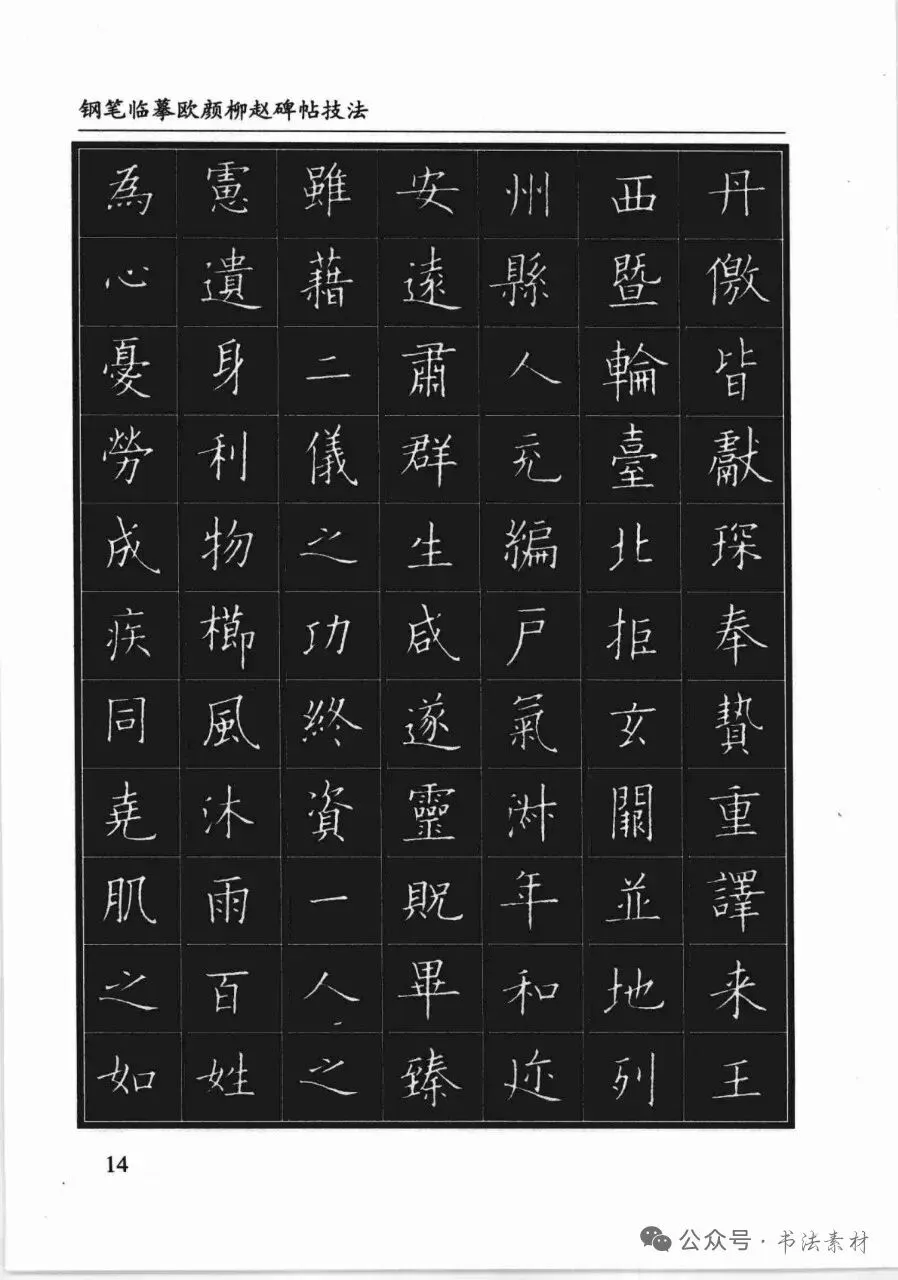 钢笔临摹欧颜柳赵碑帖技法
丹僚皆献琛奉贄重譯来王
西暨輪臺北拒玄闕並地列
州縣人充編戸氣淋年和迩
安遠肅群生咸遂靈貺畢臻
雖藉二儀之功終資一人之
慮遺身利物櫛風沐雨百姓
為心憂勞成疾同堯肌之如
14
公众号·书法素材